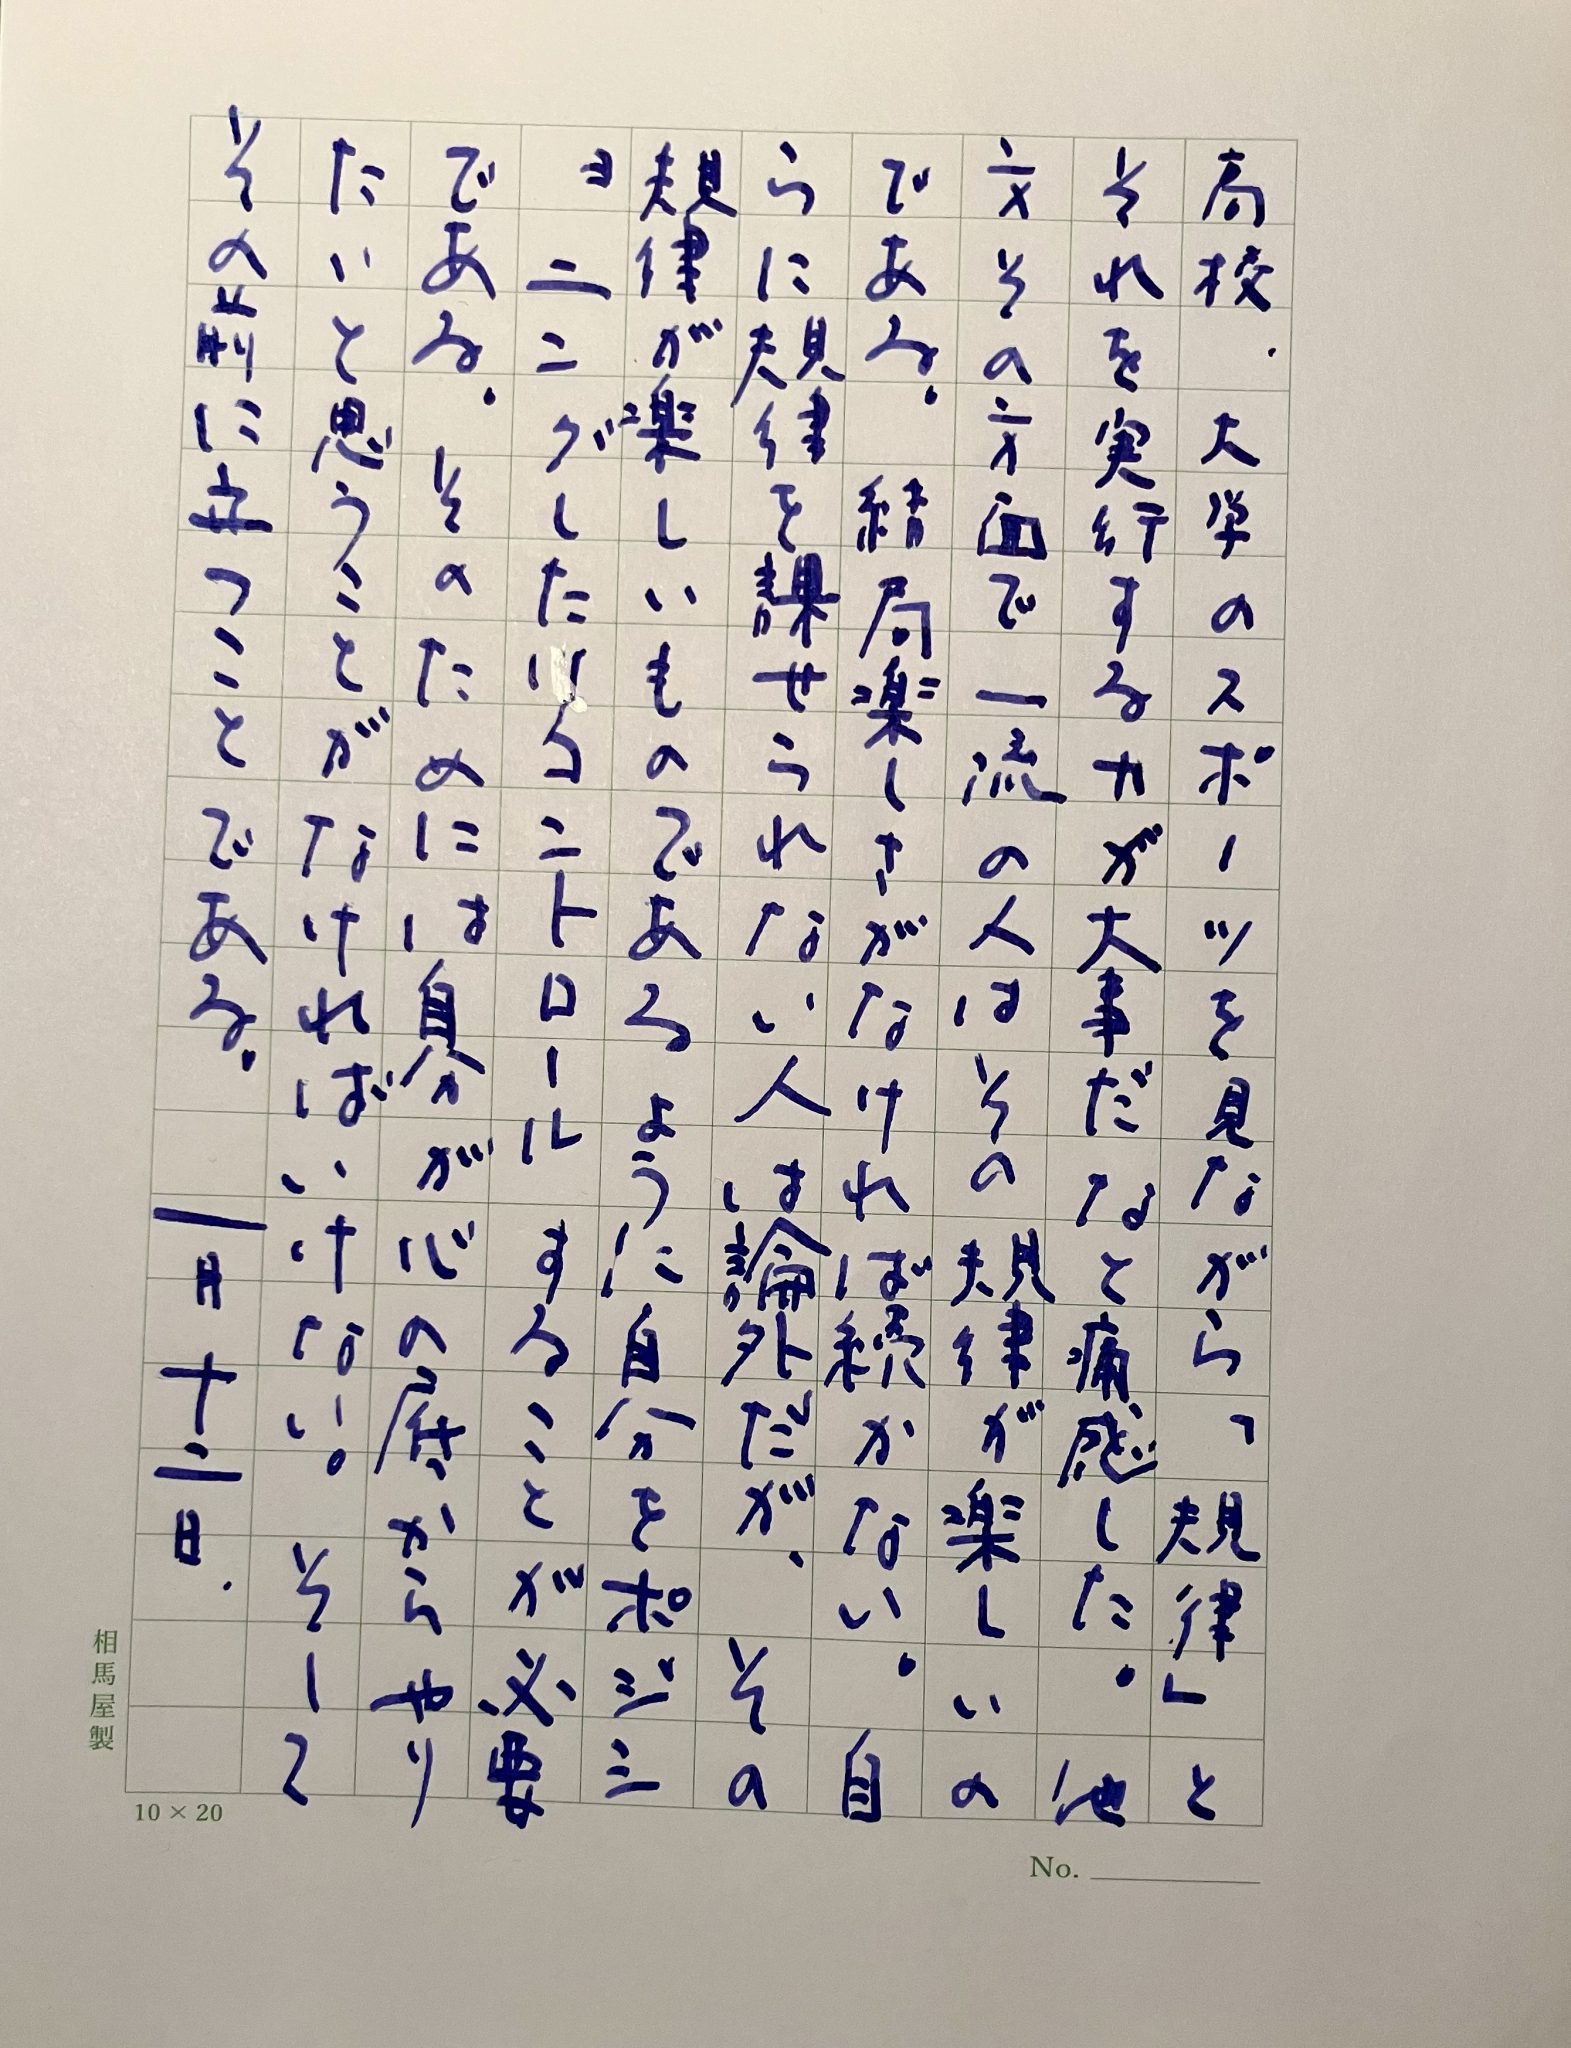 高校・大学のスポーツを見ながら「規律」と
それを実行する力が大事だなと痛感した。他
方その方面で一流の人はその規律が楽しいの
である。結局楽しさがなければ続かない。自
らに規律を課せられない人は論外だが、その
規律が楽しいものであるように自分をポジシ
ョニングしたりコントロールすることが必要
である。そのためには自分が心の底からやり
たいと思うことがなければいけない。そして
その前に立つことである。 一月十二日.
相馬屋製
10 × 20
No.